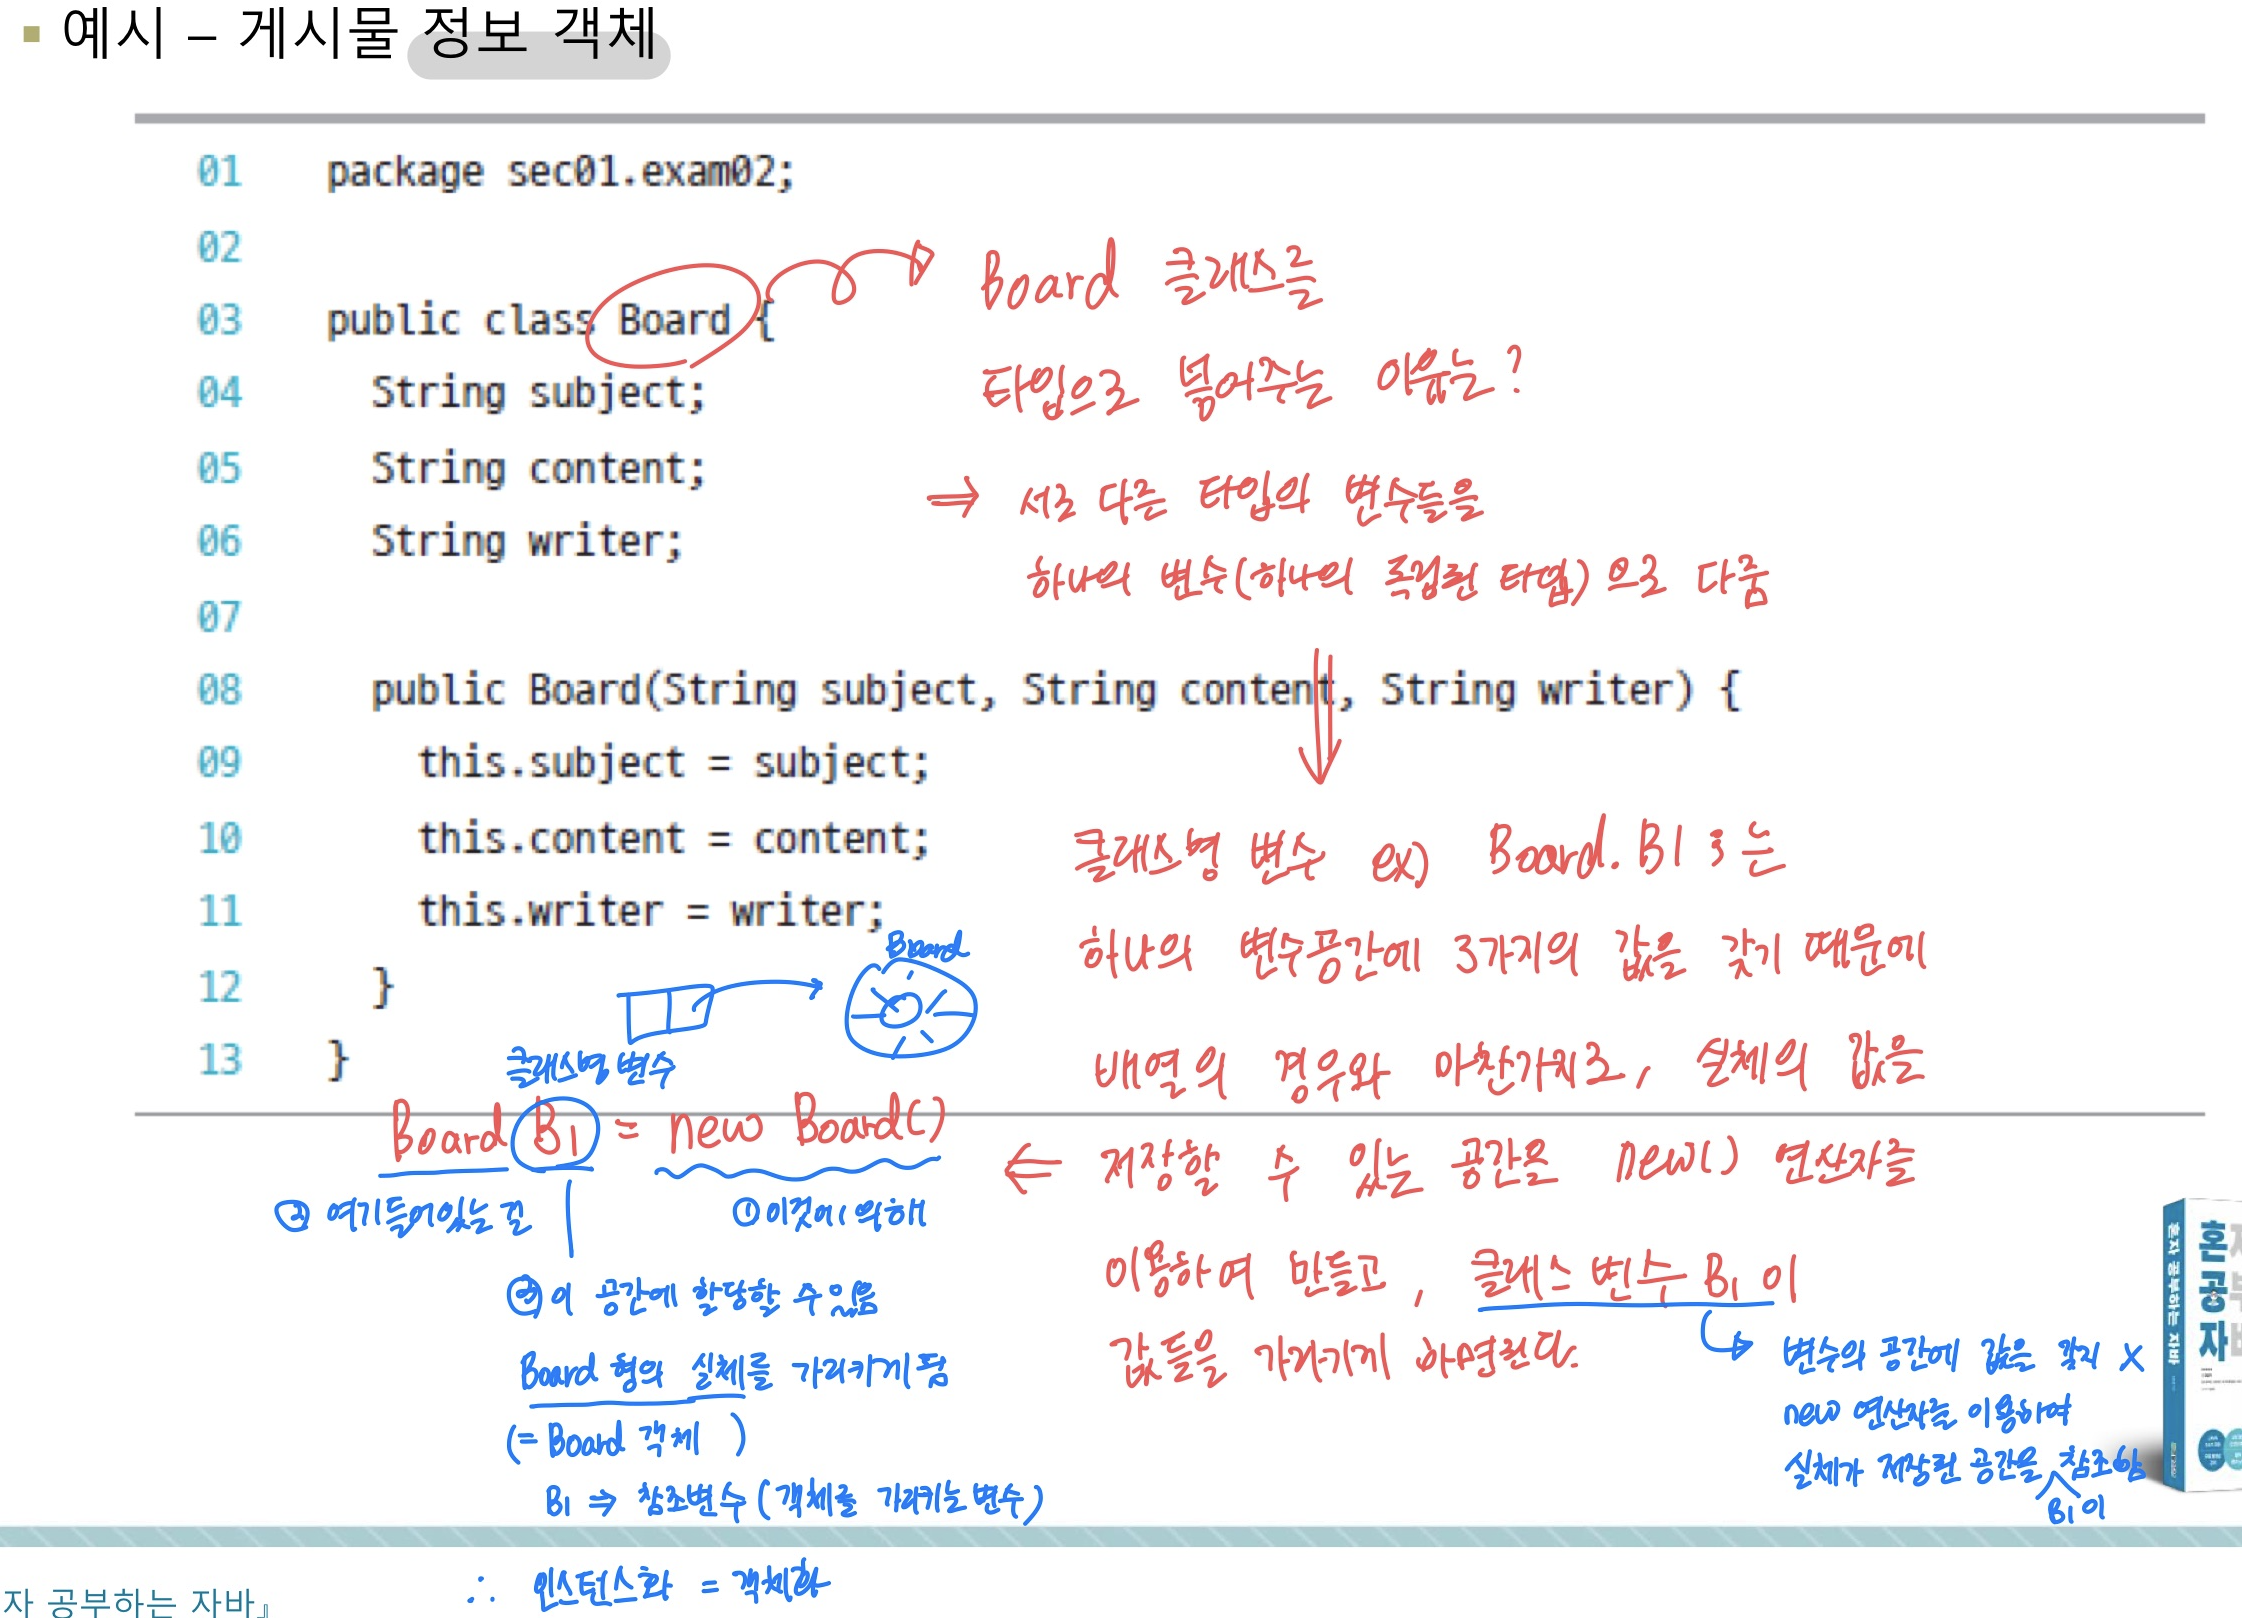 예시 – 게시물 정보 객체
01 package sec01.exam02;
02
03 public class Board {
04 String subject;
05 String content;
06 String writer;
07
08 public Board(String subject, String content, String writer) {
09 this.subject = subject;
10 this.content = content;
11 this.writer = writer;
12 }
13 }
Board 클래스를
타입으로 묶어주는 이유는?
⇒ 서로 다른 타입의 변수들을
하나의 변수(하나의 독립된 타입)으로 다룸
클래스형 변수 ex) Board. B1 는
하나의 변수공간에 3가지의 값을 갖기 때문에
배열의 경우와 마찬가지로, 실체의 값을
저장할 수 있는 공간을 new() 연산자를
이용하여 만들고, 클래스 변수 B1 이
값들을 가리키게 하면된다.
변수의 공간에 값을 갖지 X
new 연산자를 이용하여
실체가 저장된 공간을 참조함
B1이
Board
클래스형 변수
Board B1 = new Board()
② 여기들어있는 걸
① 이것에 의해
③ 이 공간에 할당할 수 있음
Board 형의 실체를 가리키게 됨
(= Board 객체 )
B1 ⇒ 참조변수 (객체를 가리키는 변수)
∴ 인스턴스화 = 객체화
혼자 공부하는 자바
혼
공
자
자 공부하는 자바』